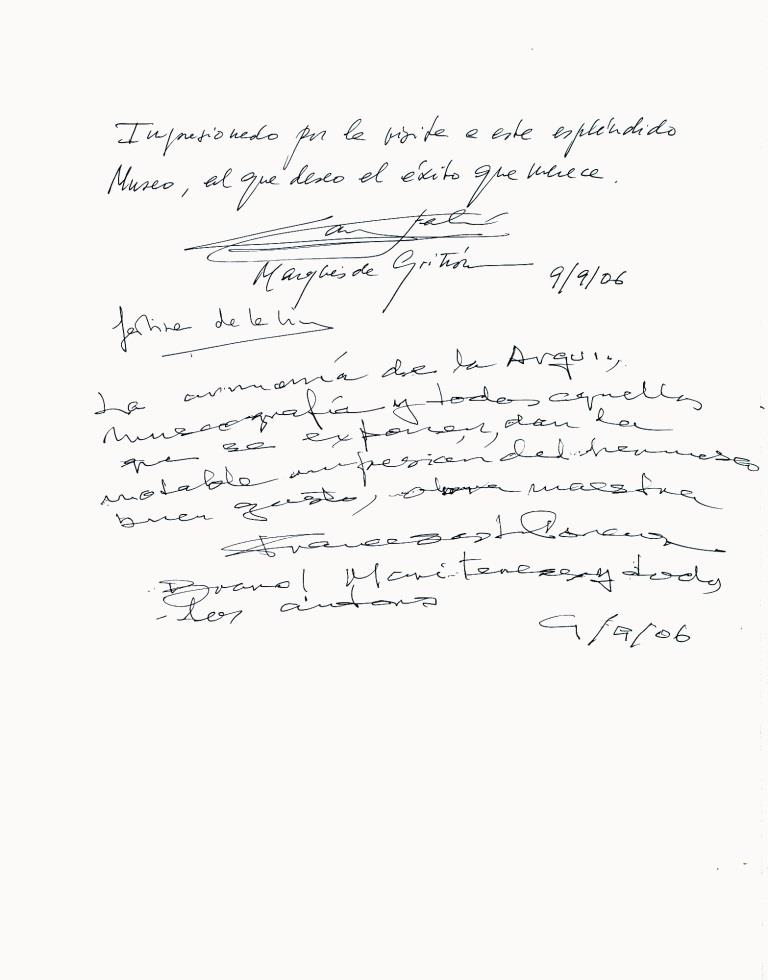 Impresionado por la visita a este espléndido
Museo, al que deseo el éxito que merece.
Marqués de Griñón
9/9/06
de la
La armonía de la Arqui,
museografía y todos aquellos
que se exponen, dan la
notable impresión del hermoso
buen gusto, obra maestra
Bravo! Mari Teresa y todos
los autores
9/9/06